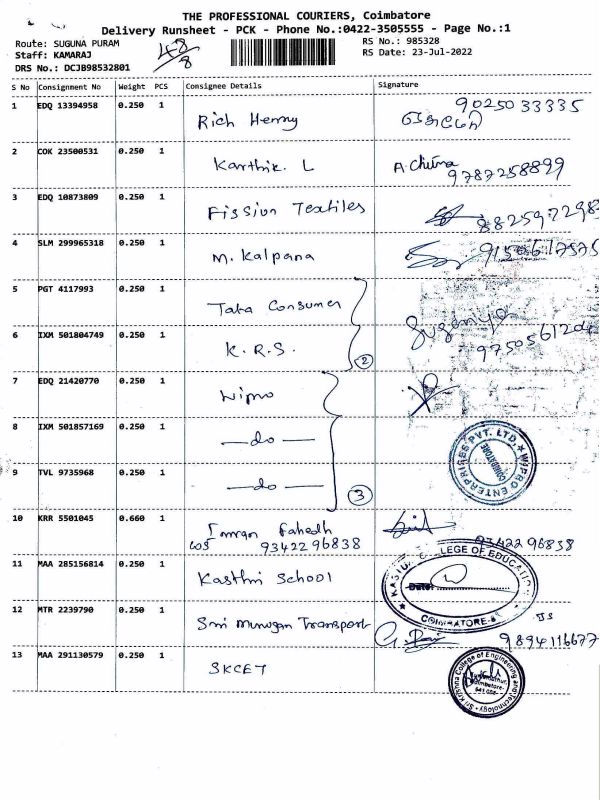 THE PROFESSIONAL COURIERS, Coimbatore
Delivery Runsheet - PCK - Phone No.:0422-3505555 - Page No.:1
Route: SUGUNA PURAM RS No.: 985328
Staff: KAMARAJ 48/8 RS Date: 23-Jul-2022
DRS No.: DCJB98532801
S No Consignment No Weight PCS Consignee Details Signature
1 EDQ 13394958 0.250 1 Rich Henry 9025033335
2 COK 23500531 0.250 1 Karthik. L A. 9787258899
3 EDQ 10873809 0.250 1 Fission Textiles
4 SLM 299965318 0.250 1 M. Kalpana
5 PGT 4117993 0.250 1 Tata Consumer
6 IXM 501804749 0.250 1 K. R. S. 2 Suganiya
7 EDQ 21420770 0.250 1 Wipro
8 IXM 501857169 0.250 1 — do — WIPRO ENTERPRISES PVT. LTD. COIMBATORE
9 TVL 9735968 0.250 1 — do — 3
10 KRR 5501045 0.660 1 Imran Fahedh
9342296838 9342296838
11 MAA 285156814 0.250 1 Kasthri School COLLEGE OF EDUCATION
Date:
COIMBATORE
12 MTR 2239790 0.250 1 Smi Murugan Transport 9894116677
13 MAA 291130579 0.250 1 SKCET Sri Krishna College of Engineering and Technology
Coimbatore-